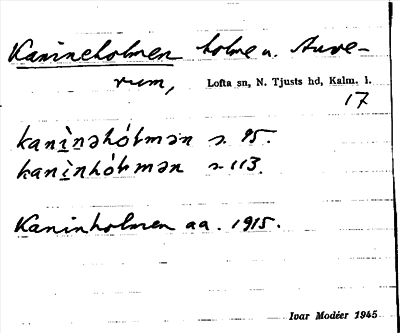 Kanineholmen holme u. Auve-
rum, Lofta sn, N. Tjusts hd, Kalm. l.
17
kanìnəhól̥mən s. 95.
kanìnhól̥mən s. 113.
Kaninholmen aa. 1915.
Ivar Modéer 1945